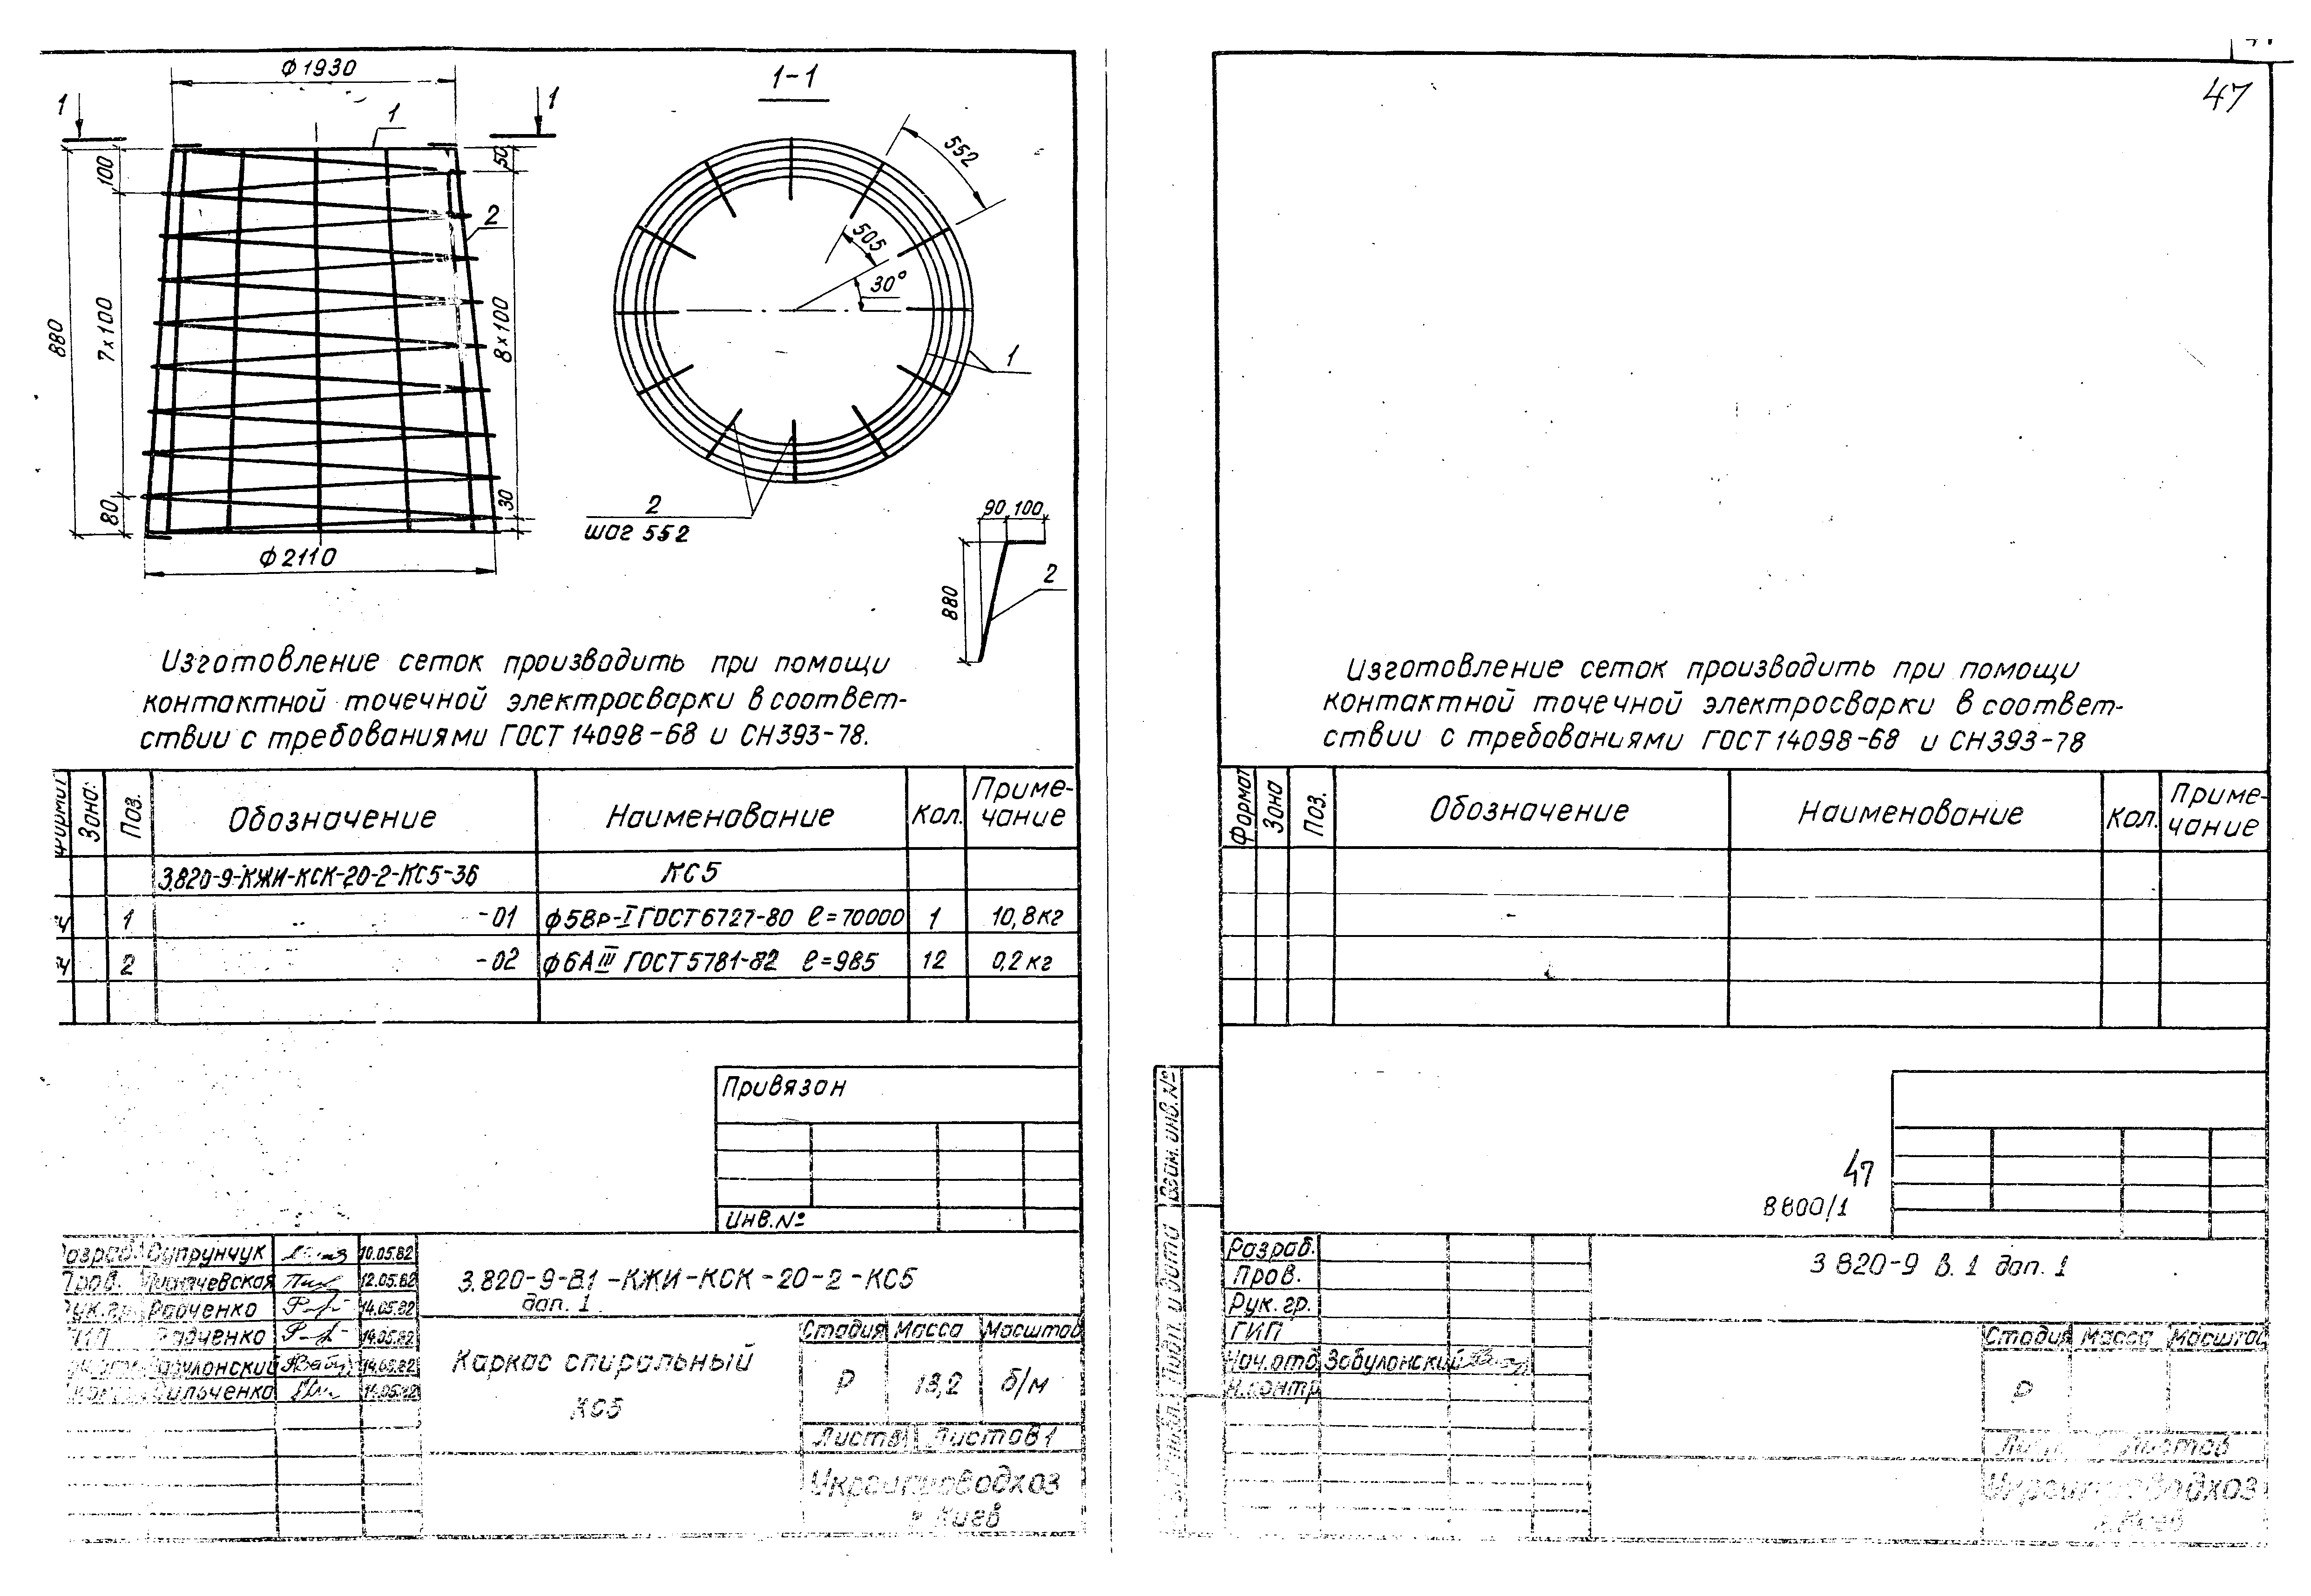 47
ф1930
1-1
1
1
1
100
50
552
2
505
30°
880
7×100
8×100
1
80
30
2
шаг 552
90 100
ф2110
880
2
Изготовление сеток производить при помощи
контактной точечной электросварки в соответ-
ствии с требованиями ГОСТ 14098-68 и СН393-78.
Зона. Поз. Обозначение Наименование Кол. Приме-
чание
3.820-9-КЖИ-КСК-20-2-КС5-36 КС5
1 -01 ф5Вр-I ГОСТ 6727-80 ℓ=70000 1 10,8кг
2 -02 ф6АIII ГОСТ 5781-82 ℓ=985 12 0,2кг
Привязан
Инв.№
Супрунчук 10.05.82
12.05.82
Радченко 14.05.82
Радченко 14.05.82
14.05.82
3.820-9-В.1-КЖИ-КСК-20-2-КС5
доп. 1
Каркас спиральный
КС5
Стадия Масса Масштаб
Р 13,2 б/м
Листов 1
Укргипроводхоз
г. Киев
Изготовление сеток производить при помощи
контактной точечной электросварки в соответ-
ствии с требованиями ГОСТ 14098-68 и СН393-78
Формат Зона Поз. Обозначение Наименование Кол. Приме-
чание
Взам. инв. №
47
8800/1
Разраб.
Пров.
Рук. гр.
ГИП
Нач.отд Забулонский
Н.контр
3 820-9 В. 1 доп. 1
Стадия Масса Масштаб
Р
Листов
Укргипроводхоз
г. Киев